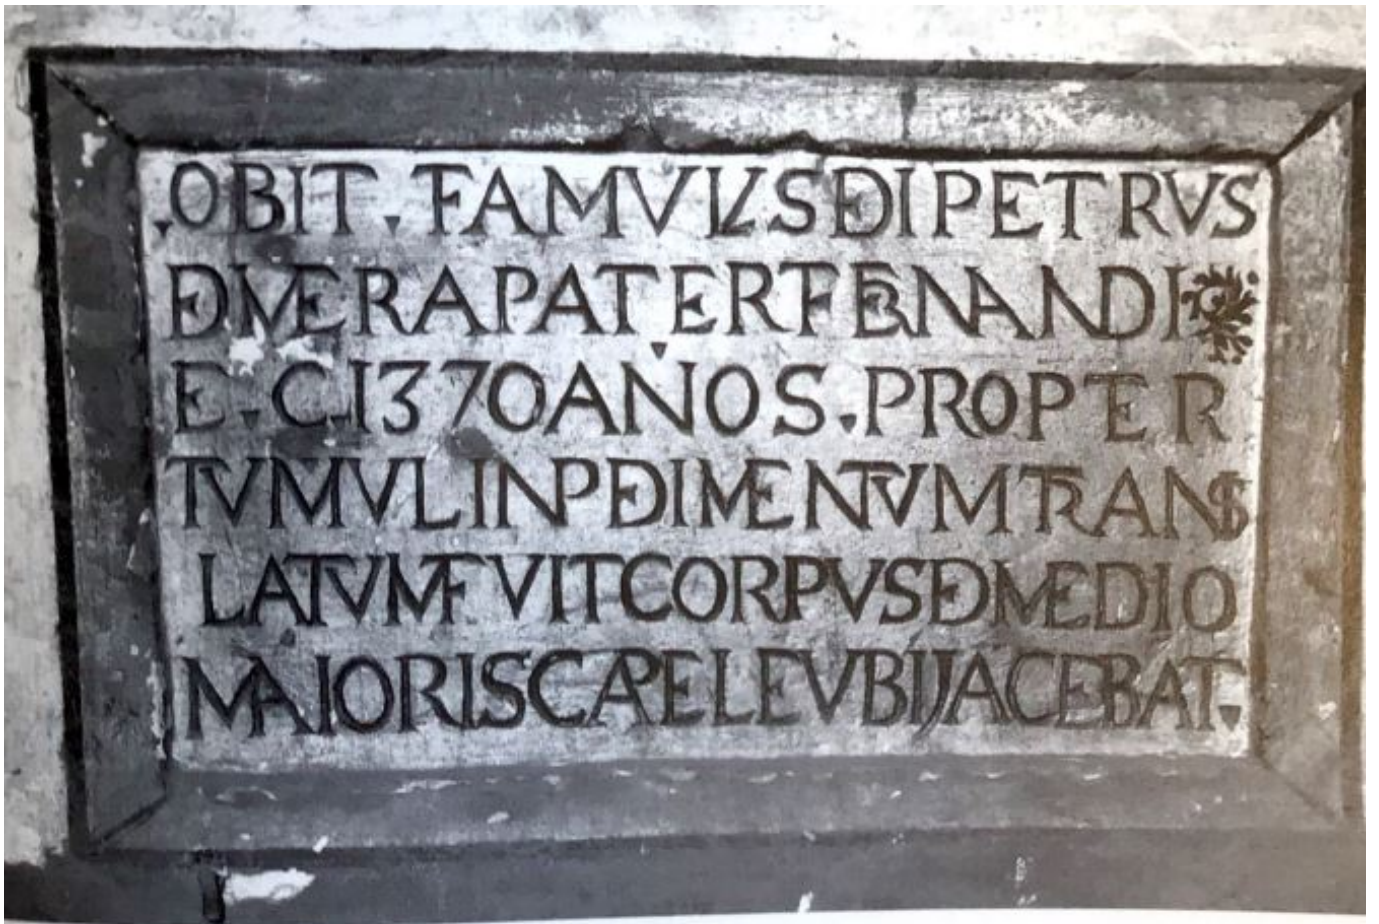 .OBIT.FAMVLVS DI PETRVS
DE MERA PATER FERNANDI
E.C.1370 ANOS.PROPTER
TVMVLI NPEDIMENTVM TRANS
LATVM FVIT CORPVS DE MEDIO
MAIORIS CAPELE VBI JACEBAT.